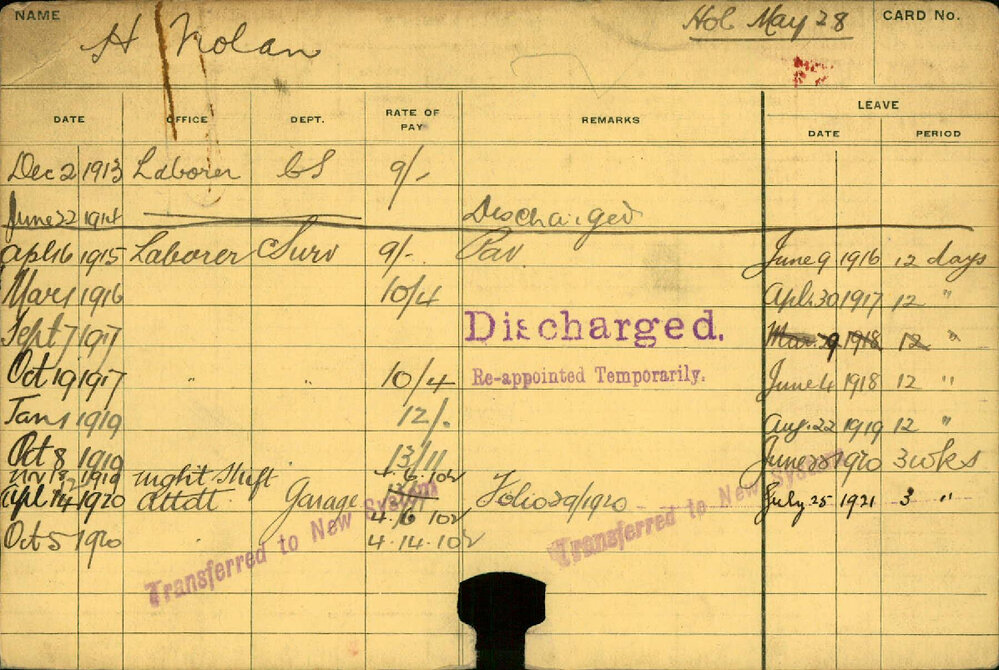 NAME H Nolan Hol May 28 CARD No.
DATE OFFICE DEPT. RATE OF PAY REMARKS LEAVE
DATE PERIOD
Dec 2 1913 Laborer CS 9/-
June 22 1914 Discharged
Apl 16 1915 Laborer Surv 9/- Pav June 9 1916 12 days
Mar 1 1916 10/4 Apl. 30 1917 12 "
Sept 7 1917 Discharged. Mar. 29 1918 12 "
Oct 19 1917 " " 10/4 Re-appointed Temporarily. June 4 1918 12 "
Jan 1 1919 12/. Aug. 22 1919 12 "
Oct 8 1919 13/11 June 28 1920 3 wks
Nov 18 1919 night shift 4.6.10
Apl 14 1920 attdt Garage Folio 29/1920 July 25 1921 3 "
4.6.10
Oct 5 1920 " 4.14.10
Transferred to New System
Transferred to New System